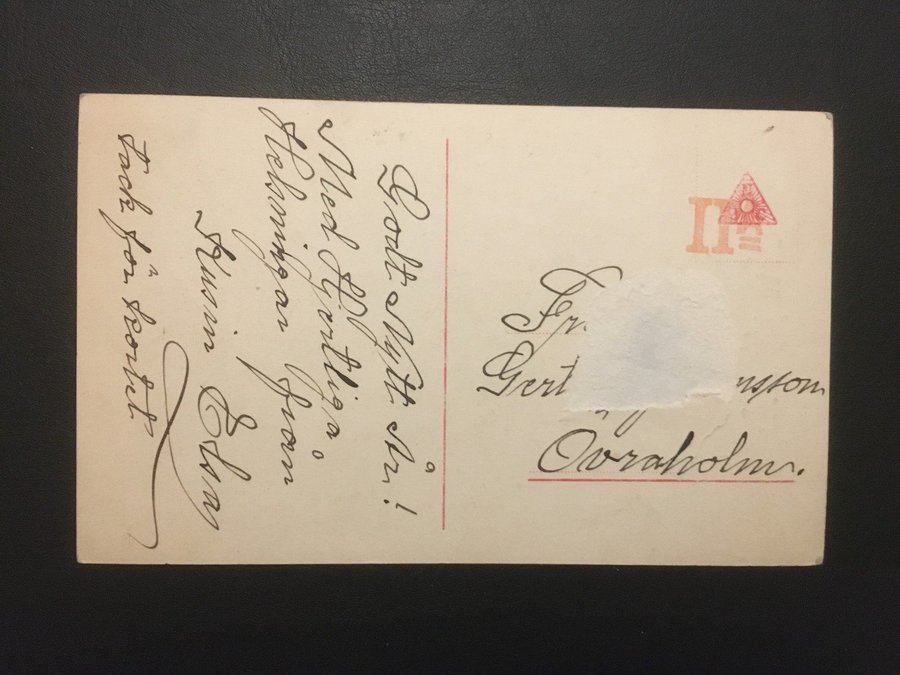 Godt Nytt År!
Med Hjertliga
Helsningar från
Kusin Elsa
Tack för kortet.
II
Fr.
Gert
nsson
Övraholm.